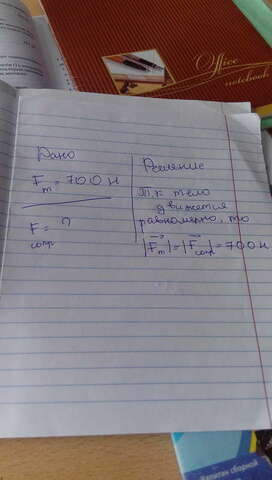 Office
notebook
Дано
Fт = 700 Н
F сопр = ?
Решение
Т.к тело
движется
равномерно, то
|Fт| = |Fсопр| = 700 Н
Капитан сборной